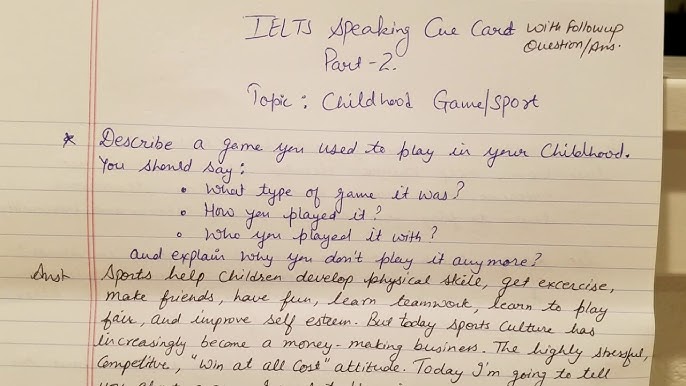 IELTS Speaking Cue Card with Followup
Question/Ans.
Part-2.
Topic: Childhood Game/sport
* Describe a game you used to play in your Childhood.
You should say:
• What type of game it was?
• How you played it?
• Who you played it with?
and explain why you don't play it anymore?
Ans: Sports help Children develop physical skill, get excercise,
make friends, have fun, learn teamwork, learn to play
fair, and improve self esteem. But today sports culture has
increasingly become a money-making business. The highly stressful,
Competitive, "win at all Cost" attitude. Today I'm going to tell
you about a